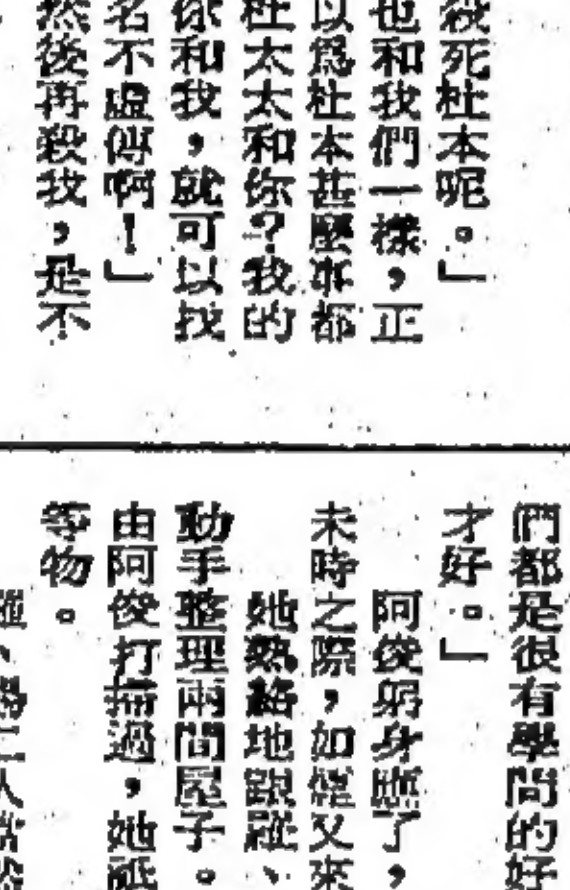 殺死杜本呢。」
也和我們一樣，正
以爲杜本甚麼事都
杜太太和你？我的
你和我，就可以找
名不虛傳啊！」
然後再殺我，是不
們都是很有學問的好
才好。」
阿俊躬身應了，
未時之際，如煌又來
她熟絡地跟羅、
動手整理兩間屋子。
由阿俊打掃過，她祇
等物。
羅、楊二人